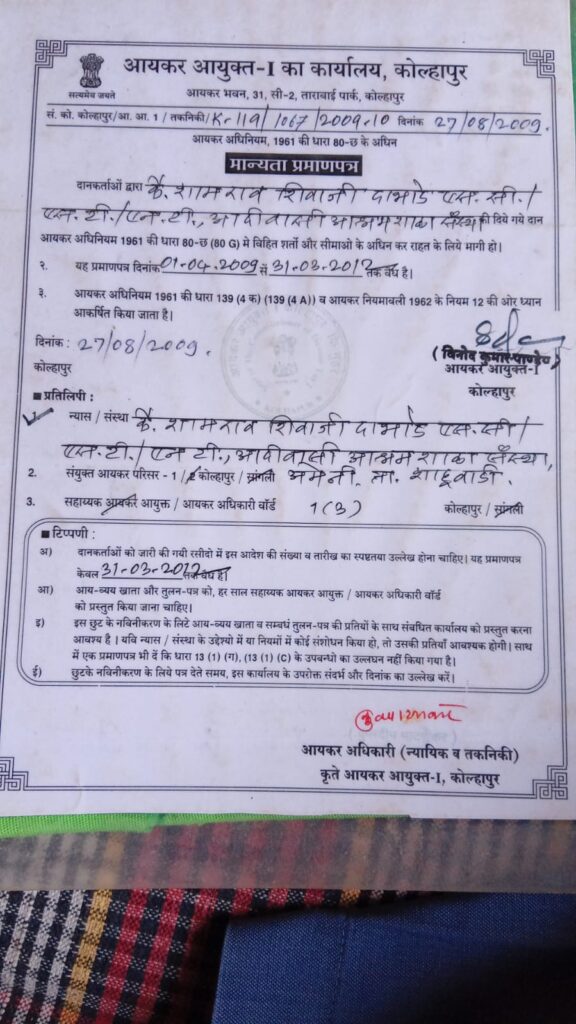 सत्यमेव जयते
आयकर आयुक्त-I का कार्यालय, कोल्हापुर
आयकर भवन, 31, सी-2, तारावाई पार्क, कोल्हापुर
सं. को. कोल्हापुर/आ. आ. 1 / तकनिकी/K-119/1067/2009-10 दिनांक 27/08/2009.
आयकर अधिनियम, 1961 की धारा 80-छ के अधिन
मान्यता प्रमाणपत्र
दानकर्ताओं द्वारा कै. शामराव शिवाजी दाभोडे एस. सी./
एस. टी./एन. टी., आदीवासी आश्रम शाळा संस्था की दिये गये दान
आयकर अधिनियम 1961 की धारा 80-छ (80 G) मे विहित शर्तो और सीमाओ के अधिन कर राहत के लिये मागी हो।
२. यह प्रमाणपत्र दिनांक 01-04-2009 से 31-03-2012 तक वैध है।
३. आयकर अधिनियम 1961 की धारा 139 (4 क) (139 (4 A)) व आयकर नियमावली 1962 के नियम 12 की ओर ध्यान
आकर्षित किया जाता है।
दिनांक : 27/08/2009.
कोल्हापुर
(विनोद कुमार पाण्डेय)
आयकर आयुक्त-I
कोल्हापुर
■ प्रतिलिपी :
न्यास / संस्था कै. शामराव शिवाजी दाभोडे एस. सी/
एस. टी./एन टी., आदीवासी आश्रम शाळा संस्था,
2. संयुक्त आयकर परिसर - 1 / कोल्हापुर / सांगली अमेनी, ता. शाहूवाडी.
3. सहाय्यक आयकर आयुक्त / आयकर अधिकारी वॉर्ड 1(3) कोल्हापुर / सांगली
■ टिप्पणी :
अ) दानकर्ताओं को जारी की गयी रसीदो में इस आदेश की संख्या व तारीख का स्पष्टतया उल्लेख होना चाहिए। यह प्रमाणपत्र
केवल 31-03-2012 तक वैध है।
आ) आय-व्यय खाता और तुलन-पत्र को, हर साल सहाय्यक आयकर आयुक्त / आयकर अधिकारी वॉर्ड
को प्रस्तुत किया जाना चाहिए।
इ) इस छुट के नविनीकरण के लिटे आय-व्यय खाता व सम्वधं तुलन-पत्र की प्रतियों के साथ संवधित कार्यालय को प्रस्तुत करना
आवश्य है । यवि न्यास / संस्था के उद्देश्यो में या नियमों में कोई संशोधन किया हो, तो उसकी प्रतियाँ आवश्यक होगी । साथ
में एक प्रमाणपत्र भी दें कि धारा 13 (1) (ग), (13 (1) (C) के उपवन्धो का उल्लघन नहीं किया गया है।
ई) छुटके नविनीकरण के लिये पत्र देते समय, इस कार्यालय के उपरोक्त संदर्भ और दिनांक का उल्लेख करें।
आयकर अधिकारी (न्यायिक व तकनिकी)
कृते आयकर आयुक्त-I, कोल्हापुर